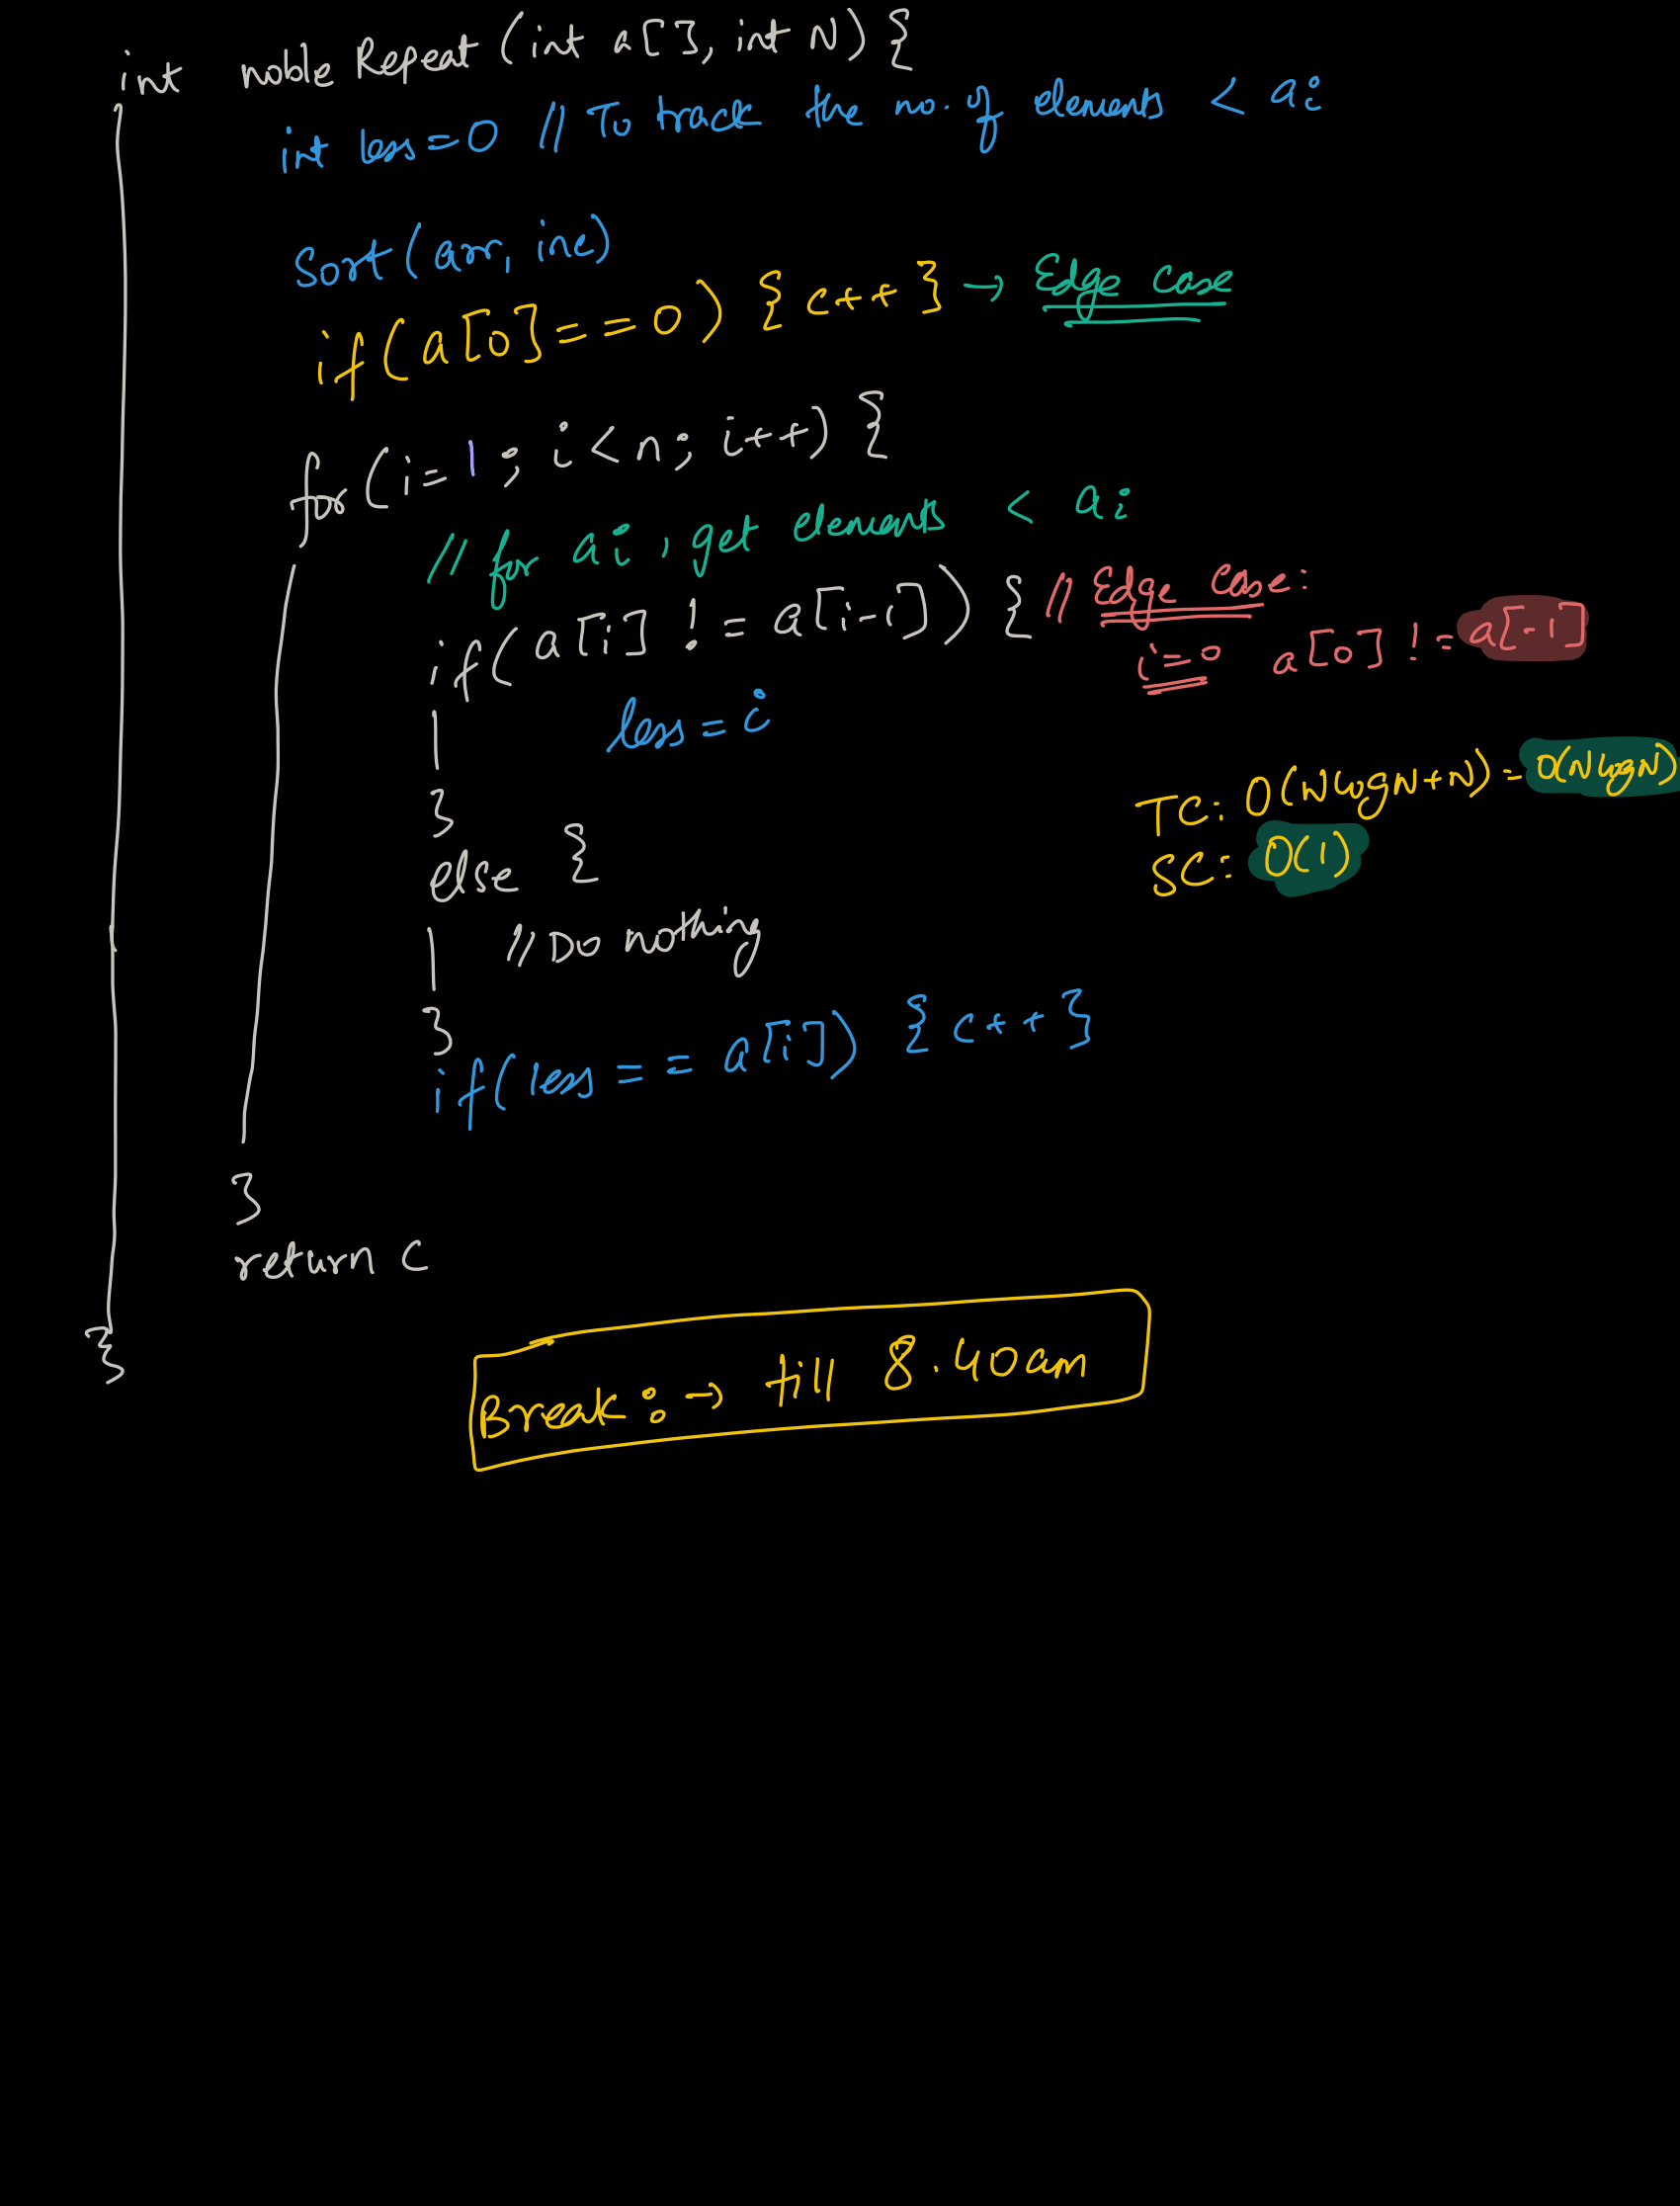 int noble Repeat (int a[], int N) {
int less=0 // To track the no. of elements < ai
Sort(arr, inc)
if(a[0]==0) {c++} → Edge case
for(i=1; i<n; i++) {
// for ai, get elements < ai
if(a[i] != a[i-1]) { // Edge case:
i=0 a[0] != a[-1]
less=i
}
TC: O(NlogN+N) = O(NlogN)
SC: O(1)
else {
// Do nothing
}
if(less == a[i]) {c++}
}
return c
}
Break: → till 8.40am